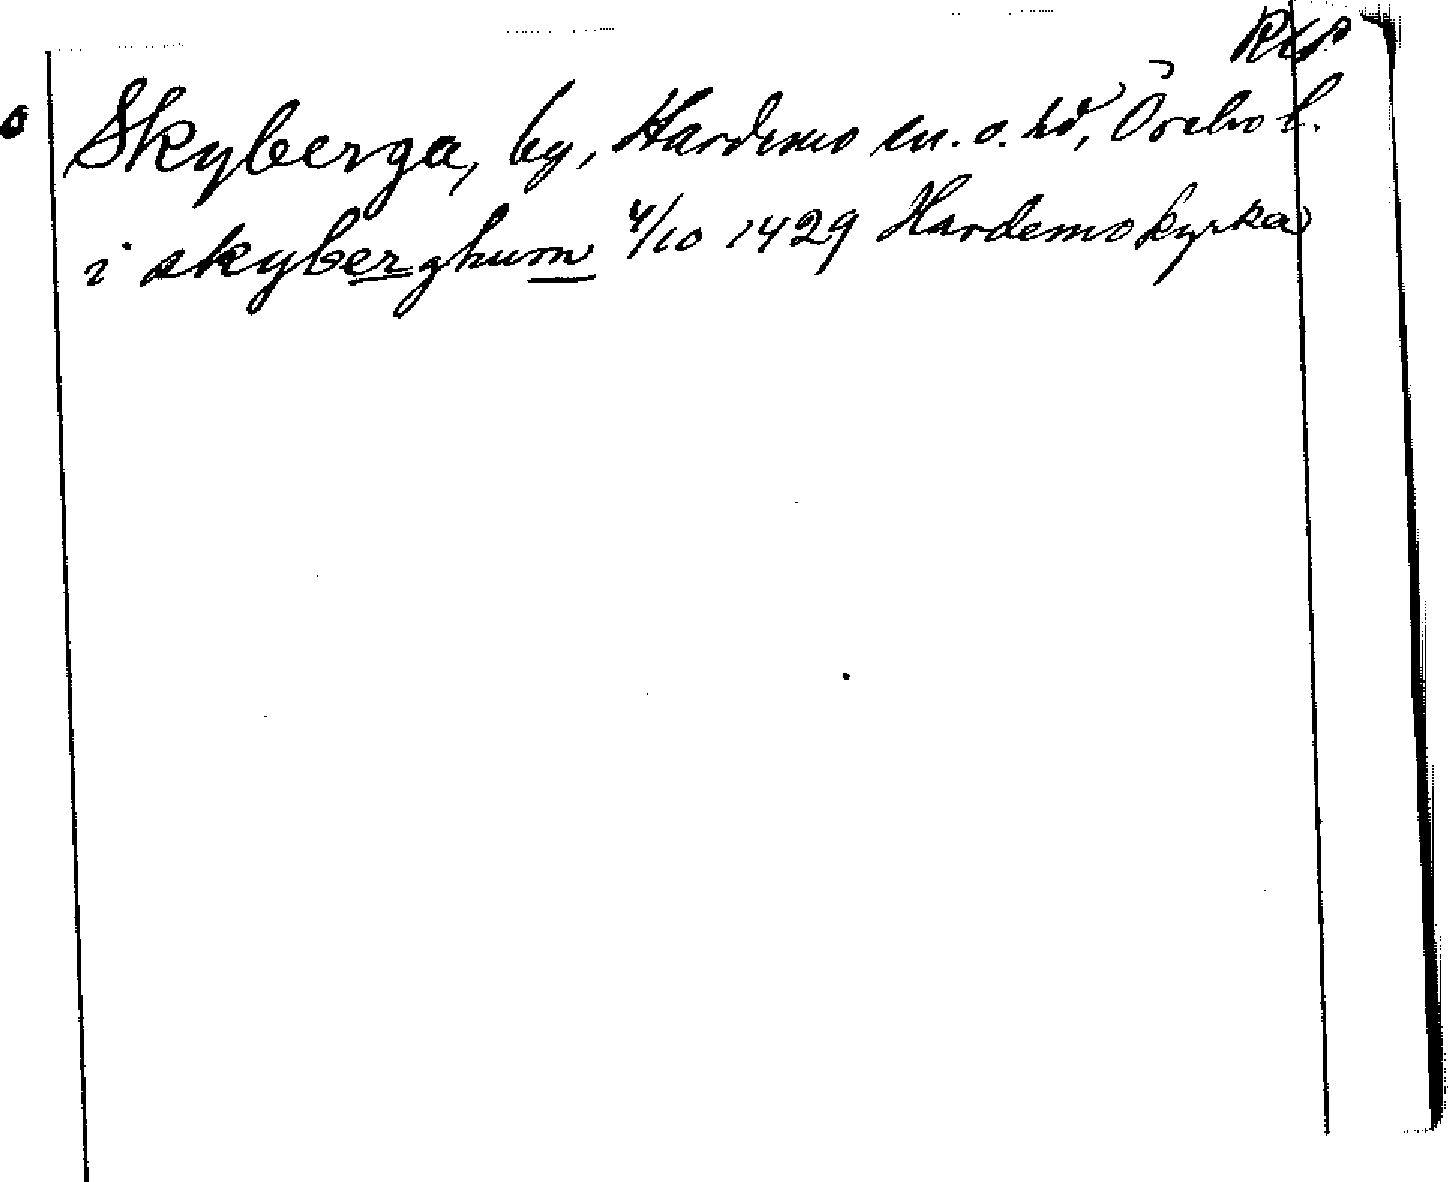 Rep
Skyberga, by, Hardemo sn. o. hd, Örebro l.
i skyberghum 4/10 1429 Hardemo kyrka